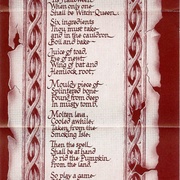 When only one
Shall be Witch-Queen...
Six ingredients
They must take
and in the cauldron
Boil and bake—
Juice of toad,
Eye of newt,
Wing of bat and
Hemlock root,
Mouldy piece of
Splintered bone
Found from deep
in musty tomb,
Molten lava,
Cooled awhile,
Taken from the
Smoking Isle;
Then the spell
Shall be at hand
To rid the Pumpkin
From the land.
So play a game—